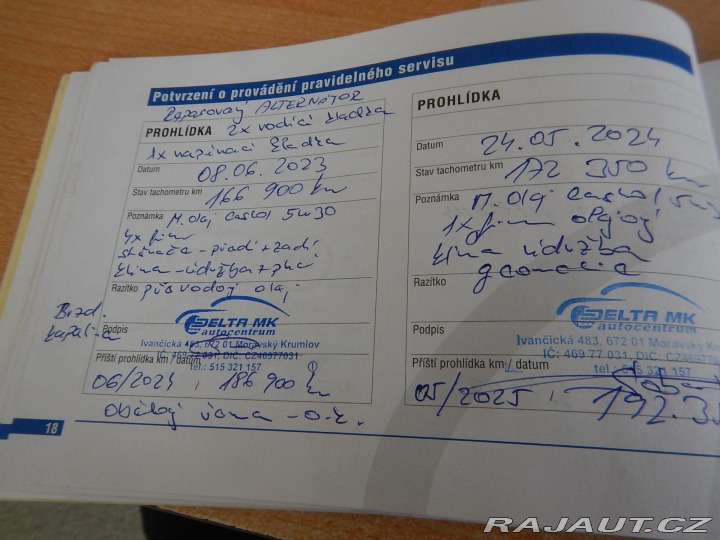 Potvrzení o provádění pravidelného servisu
Reparovaný ALTERNATOR
PROHLÍDKA 2x vodící kladka
1x napínací kladka
Datum 08.06.2023
Stav tachometru km 166 900 km
Poznámka M. olej Castrol 5W30
4x filtr
stěrače - přední + zadní
klima - údržba + plnění
Razítko převodový olej
Brzd.
kapalina
DELTA MK
autocentrum
Podpis
Ivančická 483, 672 01 Moravský Krumlov
IČ: 469 77 031, DIČ: CZ46977031
tel.: 515 321 157
Příští prohlídka km / datum
06/2024 , 186 900 km
18
PROHLÍDKA
Datum 24.05.2024
Stav tachometru km 172 350 km
Poznámka M. olej Castrol 5W30
1x filtr olejový
klima údržba
geometrie
Razítko
DELTA MK
autocentrum
Podpis
Ivančická 483, 672 01 Moravský Krumlov
IČ: 469 77 031, DIČ: CZ4697703
tel.: 515 321 157
Příští prohlídka km / datum
05/2025 , 192.35
RAJAUT.CZ